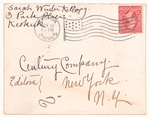 Sarah Winter Kellogg
3 Park Place
Keokuk
Century Company
Editor
New York
N.Y.